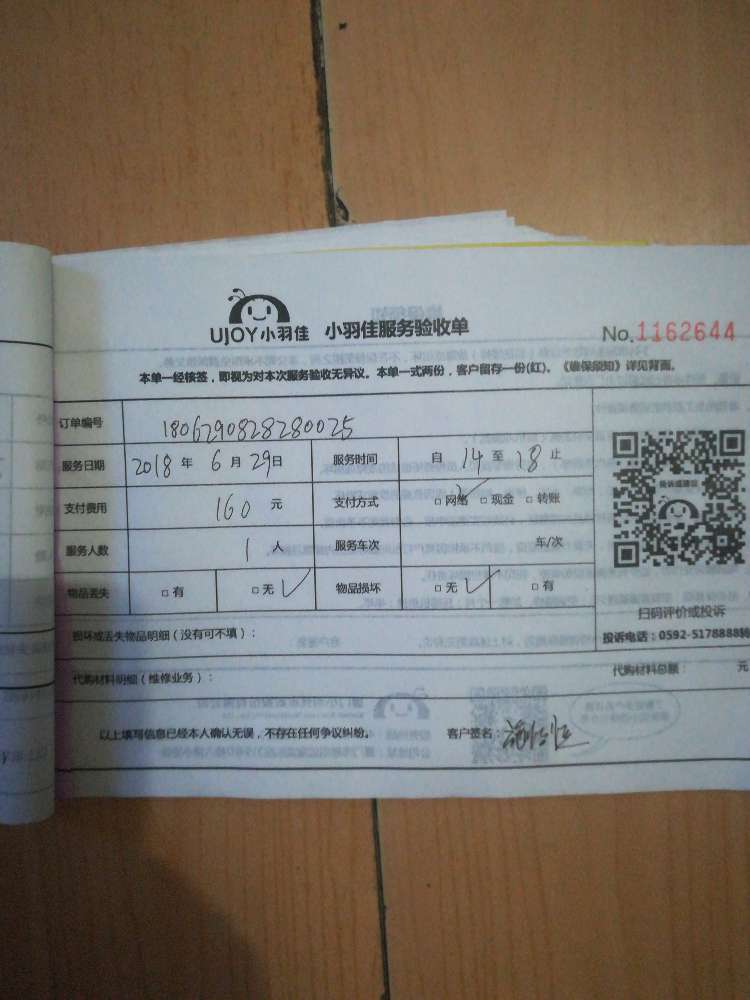 UJOY小羽佳 小羽佳服务验收单 No.1162644
本单一经核签，即视为对本次服务验收无异议。本单一式两份，客户留存一份(红)。《维保须知》详见背面。
订单编号 1806290828280025
服务日期 2018年6月29日 服务时间 自14至18止
支付费用 160元 支付方式 □网络 □现金 □转账
服务人数 1人 服务车次 车/次
物品丢失 □有 □无 物品损坏 □无 □有
投诉或建议
扫码评价或投诉
投诉电话：0592-5178888转
损坏或丢失物品明细（没有可不填）：
代购材料明细（维修业务）： 代购材料总额： 元
以上填写信息已经本人确认无误，不存在任何争议纠纷。 客户签名：